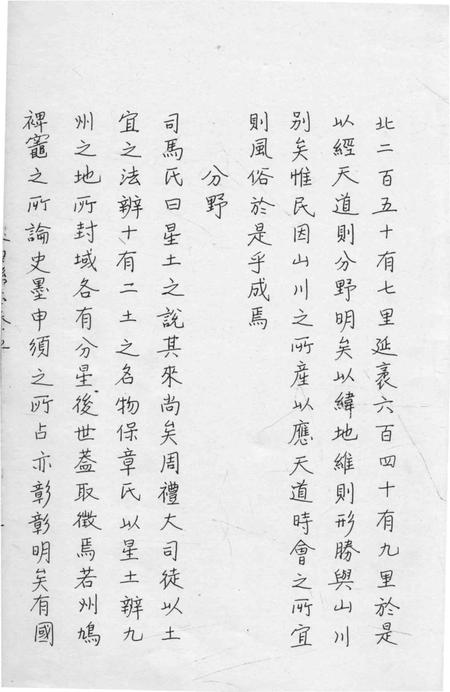 北二百五十有七里延袤六百四十有九里於是
以經天道則分野明矣以緯地維則形勝與山川
別矣惟民因山川之所産以應天道時會之所宜
則風俗於是乎成焉
分野
司馬氏曰星土之說其來尚矣周禮大司徒以土
宜之法辨十有二土之名物保章氏以星土辨九
州之地所封域各有分星後世葢取徵焉若州鳩
裨竈之所論史墨申須之所占亦彰彰明矣有國